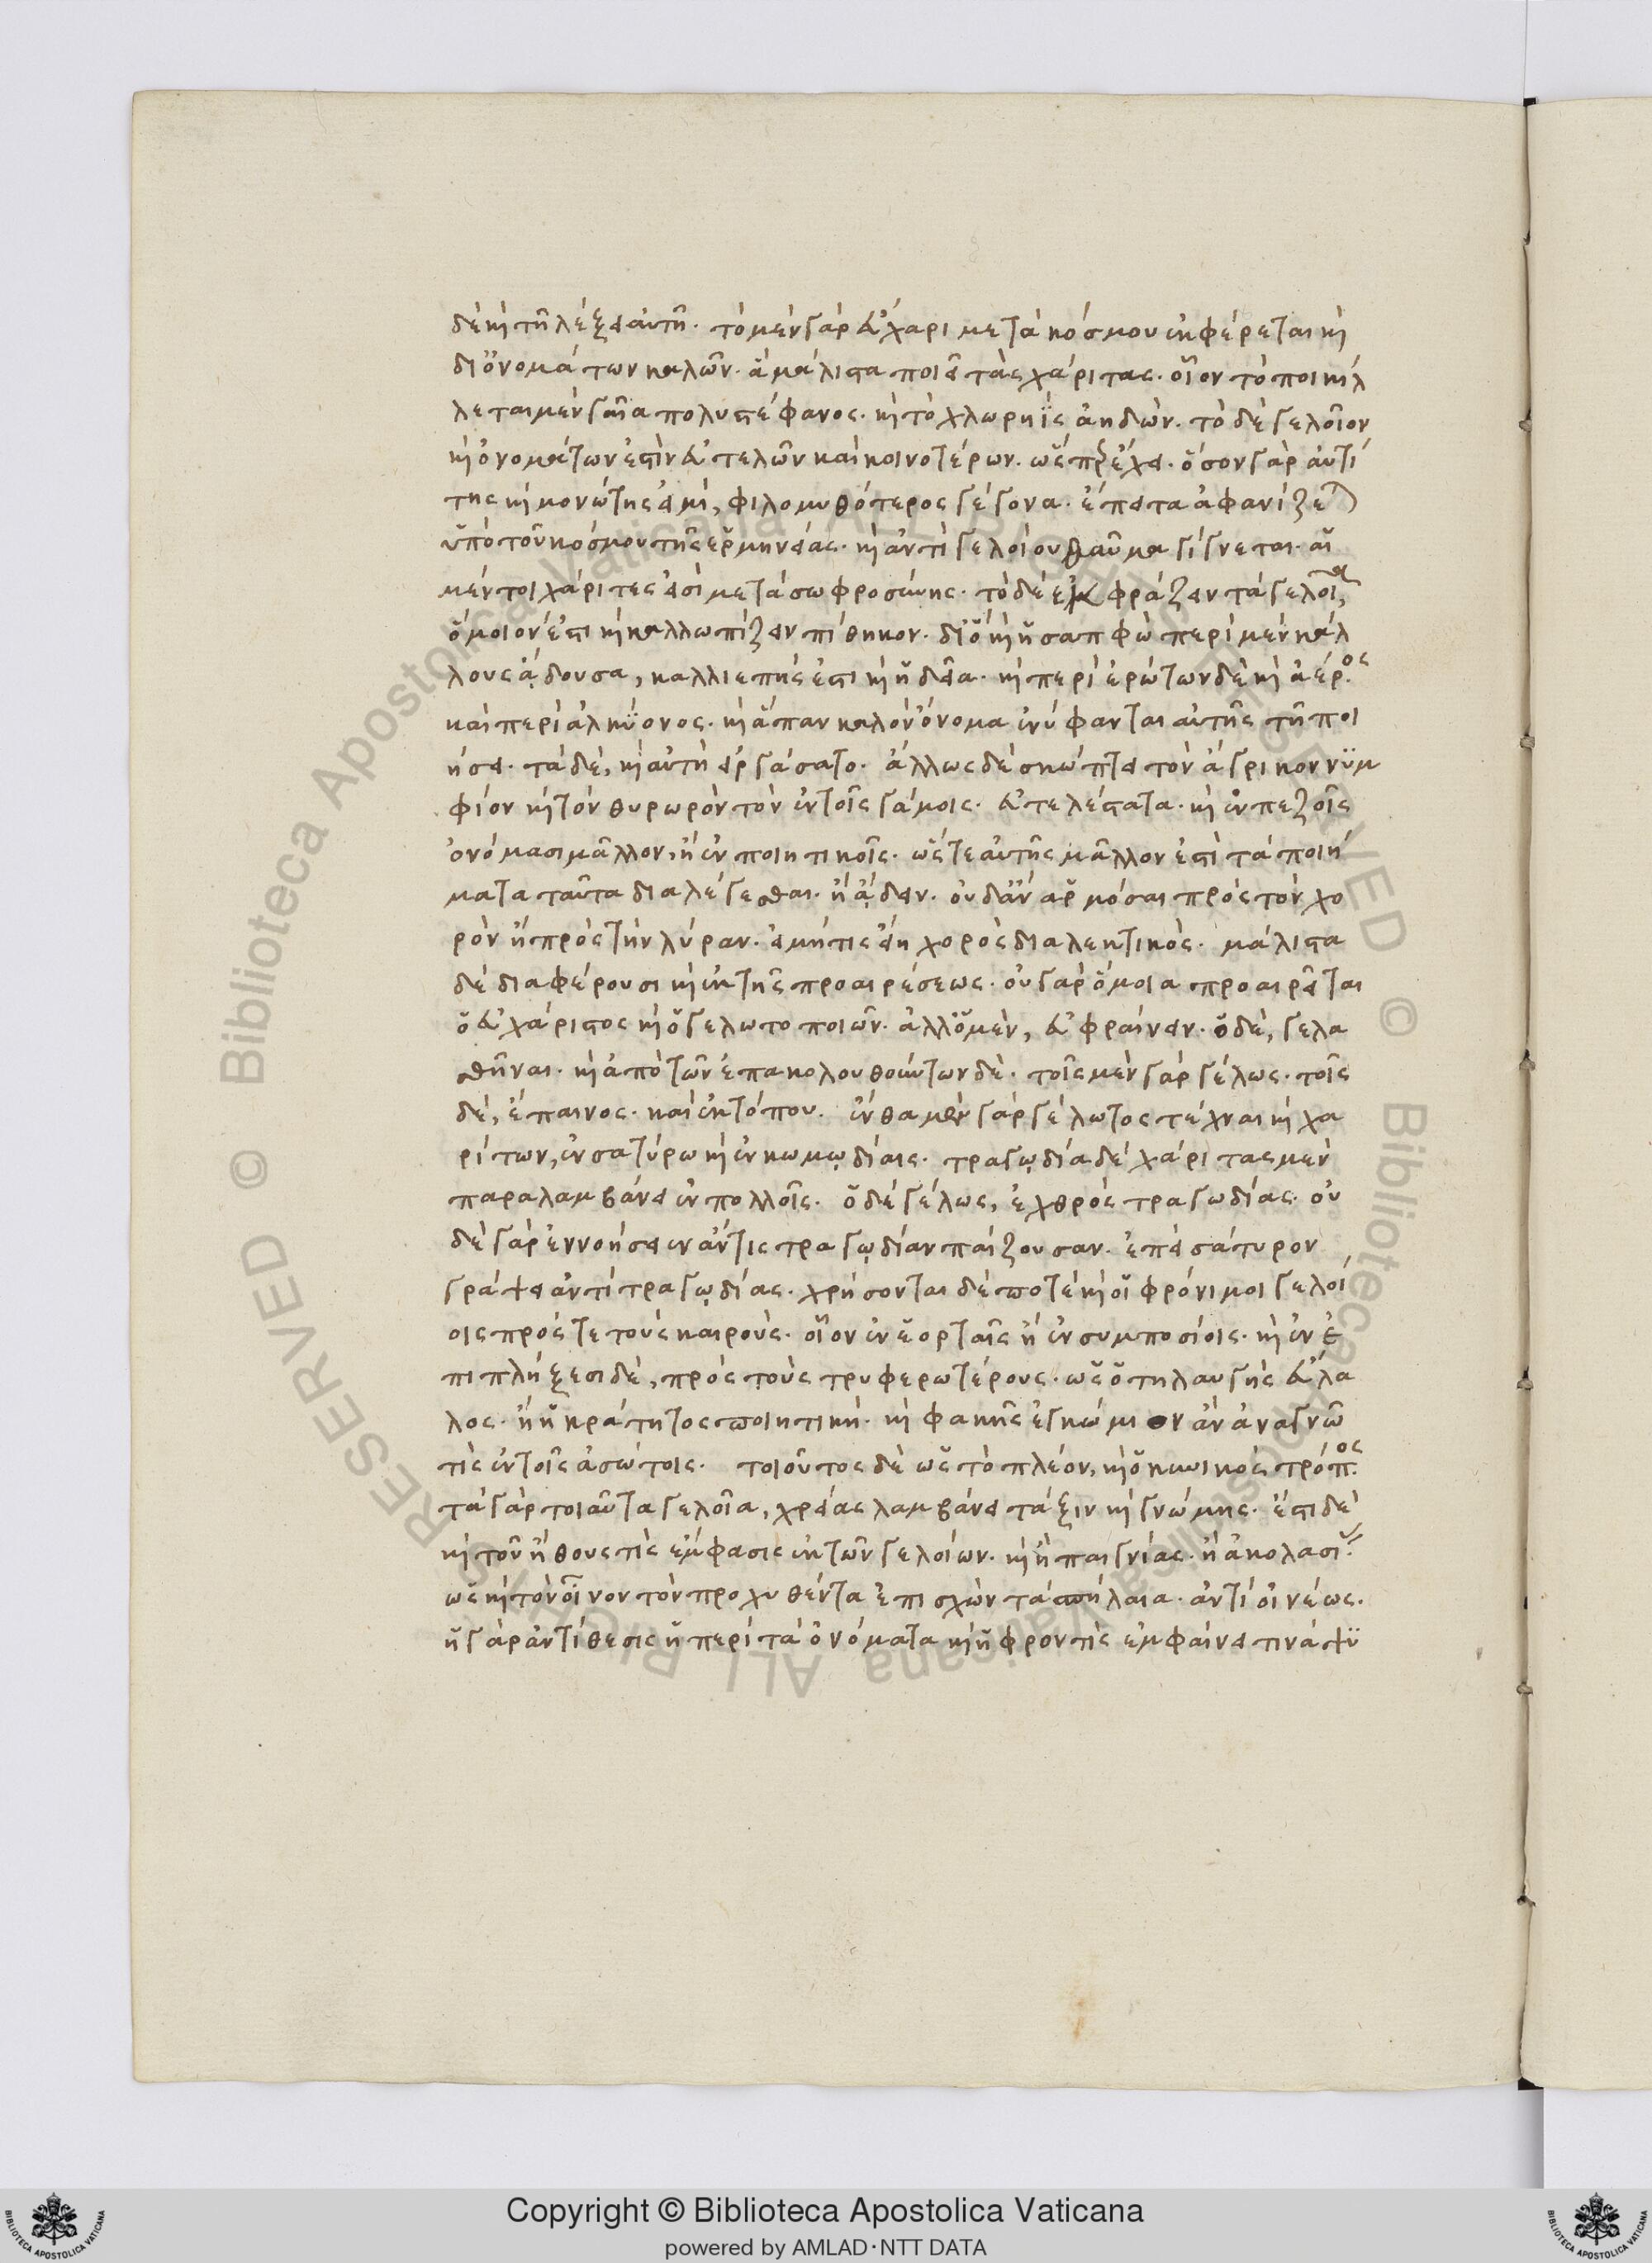 δὲ καὶ τῇ λέξει αὐτῇ. τὸ μὲν γὰρ εὔχαρι μετὰ κόσμου ἐκφέρεται καὶ
δι' ὀνομάτων καλῶν. ἃ μάλιστα ποιεῖ τὰς χάριτας. οἷον τὸ ποικίλ
λεται μὲν γαῖα πολυστέφανος. καὶ τὸ χλωρηῒς ἀηδών. τὸ δὲ γελοῖον
καὶ ὀνομάτων ἐστὶν εὐτελῶν καὶ κοινοτέρων. ὥσπερ ἔχει. ὅσον γὰρ αὐτί
της καὶ μονώτης εἰμὶ, φιλομυθότερος γέγονα. ἔπειτα ἀφανίζεται
ὑπὸ τοῦ κόσμου τῆς ἑρμηνείας. καὶ ἀντὶ γελοίου θαῦμα γίγνεται. αἱ
μέντοι χάριτές εἰσι μετὰ σωφροσύνης. τὸ δὲ ἐκφράζειν τὰ γελοῖα,
ὅμοιόν ἐστι καὶ καλλωπίζειν πίθηκον. διὸ καὶ ἡ σαπφὼ περὶ μὲν κάλ
λους ᾄδουσα, καλλιεπής ἐστι καὶ ἡδεῖα. καὶ περὶ ἐρώτων δὲ καὶ ἀέρος
καὶ περὶ ἀλκυόνος. καὶ ἅπαν καλὸν ὄνομα ἐνύφανται αὐτῆς τῇ ποι
ήσει. τὰ δὲ, καὶ αὐτὴ εἰργάσατο. ἄλλως δὲ σκώπτει τὸν ἄγρικον νυμ
φίον καὶ τὸν θυρωρὸν τὸν ἐν τοῖς γάμοις. εὐτελέστατα. καὶ ἐν πεζοῖς
ὀνόμασι μᾶλλον, ἢ ἐν ποιητικοῖς. ὥστε αὐτῆς μᾶλλον ἐστὶ τὰ ποιή
ματα ταῦτα διαλέγεσθαι. ἢ ᾄδειν. οὐδ' ἂν ἁρμόσαι πρὸς τὸν χο
ρὸν ἢ πρὸς τὴν λύραν. εἰ μή τις εἴη χορὸς διαλεκτικός. μάλιστα
δὲ διαφέρουσι καὶ ἐκ τῆς προαιρέσεως. οὐ γὰρ ὅμοια προαιρεῖται
ὁ εὐχάριστος καὶ ὁ γελωτοποιῶν. ἀλλ' ὁ μὲν, εὐφραίνειν. ὁ δὲ, γελα
σθῆναι. καὶ ἀπὸ τῶν ἐπακολουθούντων δὲ. τοῖς μὲν γὰρ γέλως. τοῖς
δὲ, ἔπαινος. καὶ ἐκ τόπου. ἔνθα μὲν γὰρ γέλωτος τέχναι καὶ χα
ρίτων, ἐν σατύρω καὶ ἐν κωμῳδίαις. τραγῳδία δὲ χάριτας μὲν
παραλαμβάνει ἐν πολλοῖς. ὁ δὲ γέλως, ἐχθρὸς τραγωδίας. οὐ
δὲ γὰρ ἐννοήσειεν ἄν τις τραγῳδίαν παίζουσαν. ἐπεὶ σάτυρον
γράψει ἀντὶ τραγῳδίας. χρήσονται δέ ποτε καὶ οἱ φρόνιμοι γελοί
οις πρός τε τοὺς καιρούς. οἷον ἐν ἑορταῖς ἢ ἐν συμποσίοις. καὶ ἐν ἐ
πιπλήξεσι δὲ, πρὸς τοὺς τρυφερωτέρους. ὡς ὁ τηλαυγὴς εὔλα
λος. ἢ ἡ κράτητος ποιητική. καὶ φακῆς ἐγκώμιον ἂν ἀναγνῶ
τις ἐν τοῖς ἀσώτοις. τοιοῦτος δὲ ὡς τὸ πλέον, καὶ ὁ κυνικὸς τρόπος.
τὰ γὰρ τοιαῦτα γελοῖα, χρείας λαμβάνει τάξιν καὶ γνώμης. ἔστι δὲ
καὶ τοῦ ἤθους τις ἔμφασις ἐκ τῶν γελοίων. καὶ ἢ παιγνίας. ἢ ἀκολασίας.
ὡς καὶ τὸν οἶνον τὸν προχυθέντα ἐπισχὼν τὰ πήλαια. ἀντὶ οἰνέως.
ἡ γὰρ ἀντίθεσις ἡ περὶ τὰ ὀνόματα καὶ ἡ φροντὶς ἐμφαίνει τινὰ ψυ